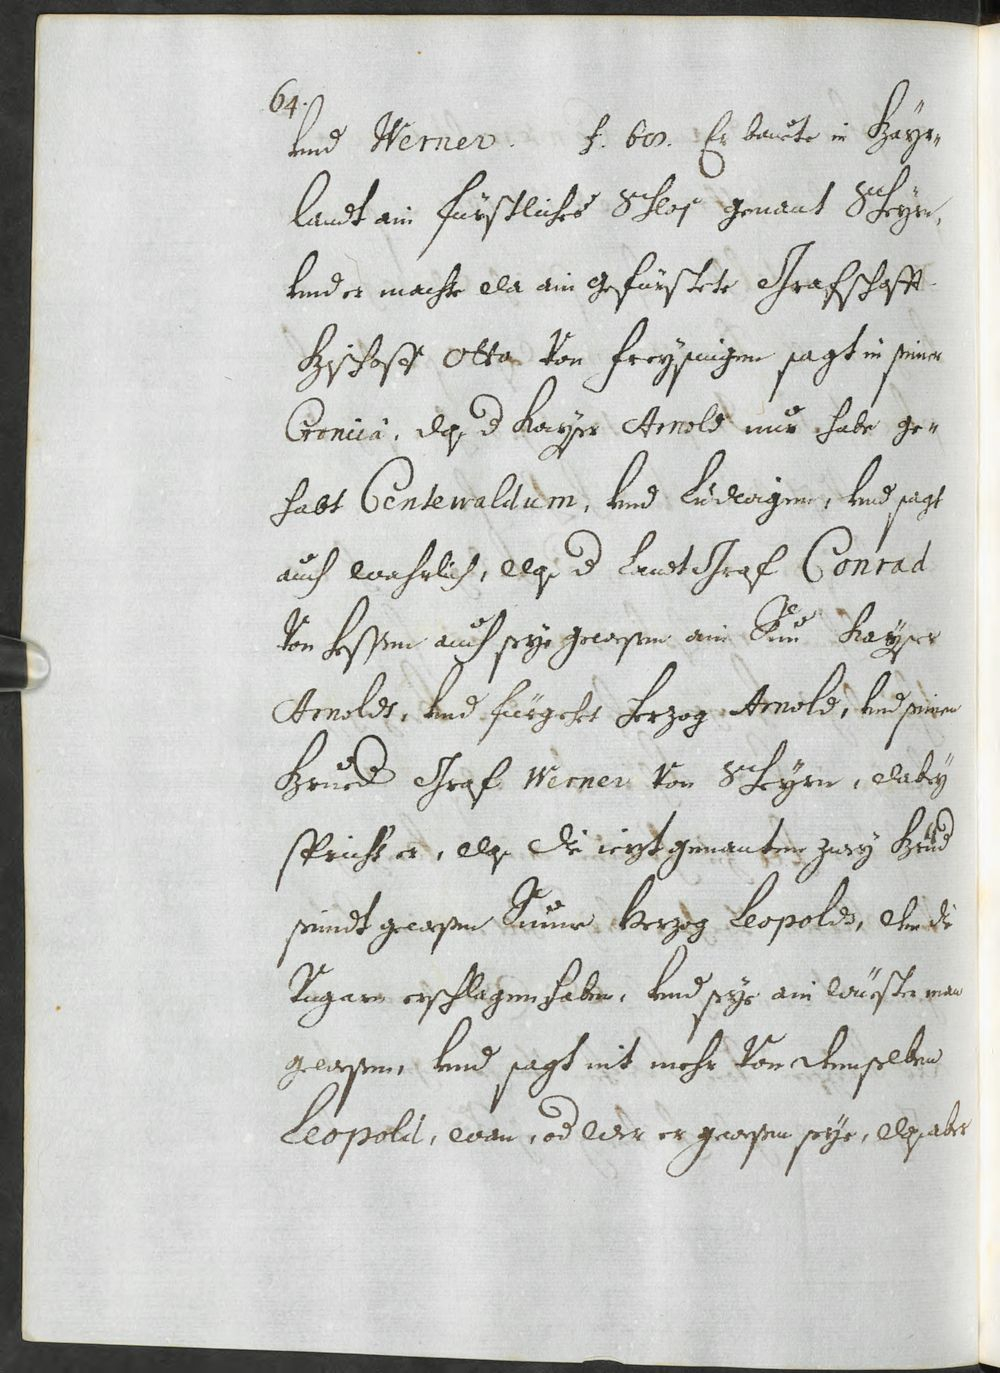 64.
vnd Werner. f. 60. Er baute in Bayr=
landt ain fürstliches Schlos genant Scheyrn,
vnd er machte da ain gefürstete Grafschafft.
Bischoff Otto von Freysingen sagt in seiner
Cronica, dz d Kayser Arnold nur habe ge=
habt Centewaldum, vnd Ludwigen, vnd sagt
auch wahrlich, dz d LandtGraf Conrad
von Hessen auch seye gewesen ain Sun Kayser
Arnolds, vnd fürgehet Herzog Arnold, vnd seinen
Brued Graf Werner von Scheyrn, dabey
spricht er, dz die ieztgenanten zwey Brüed
seindt gewesen Sune Herzog Leopolds, den die
Vngarn erschlagen haben, vnd seye ain wüester man
gewesen, vnd sagt nit mehr von demselben
Leopold, wan, od wer er gewesen seye, dz aber